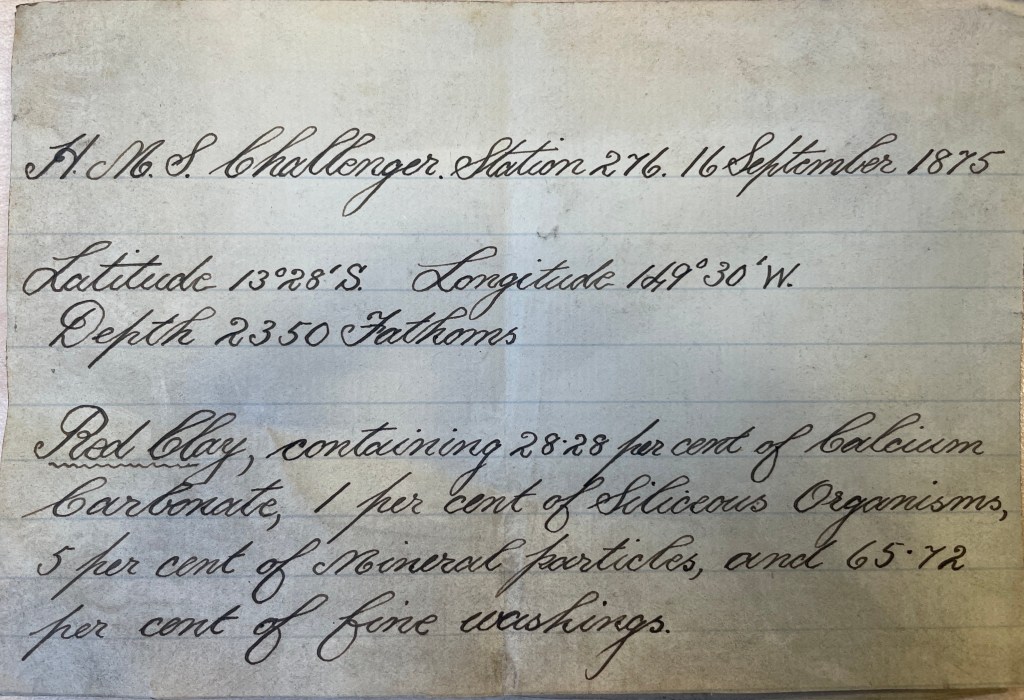 H. M. S. Challenger. Station 276. 16 September 1875
Latitude 13°28'S. Longitude 149°30'W.
Depth 2350 Fathoms
Red Clay, containing 28·28 per cent of Calcium
Carbonate, 1 per cent of Siliceous Organisms,
5 per cent of Mineral particles, and 65·72
per cent of fine washings.